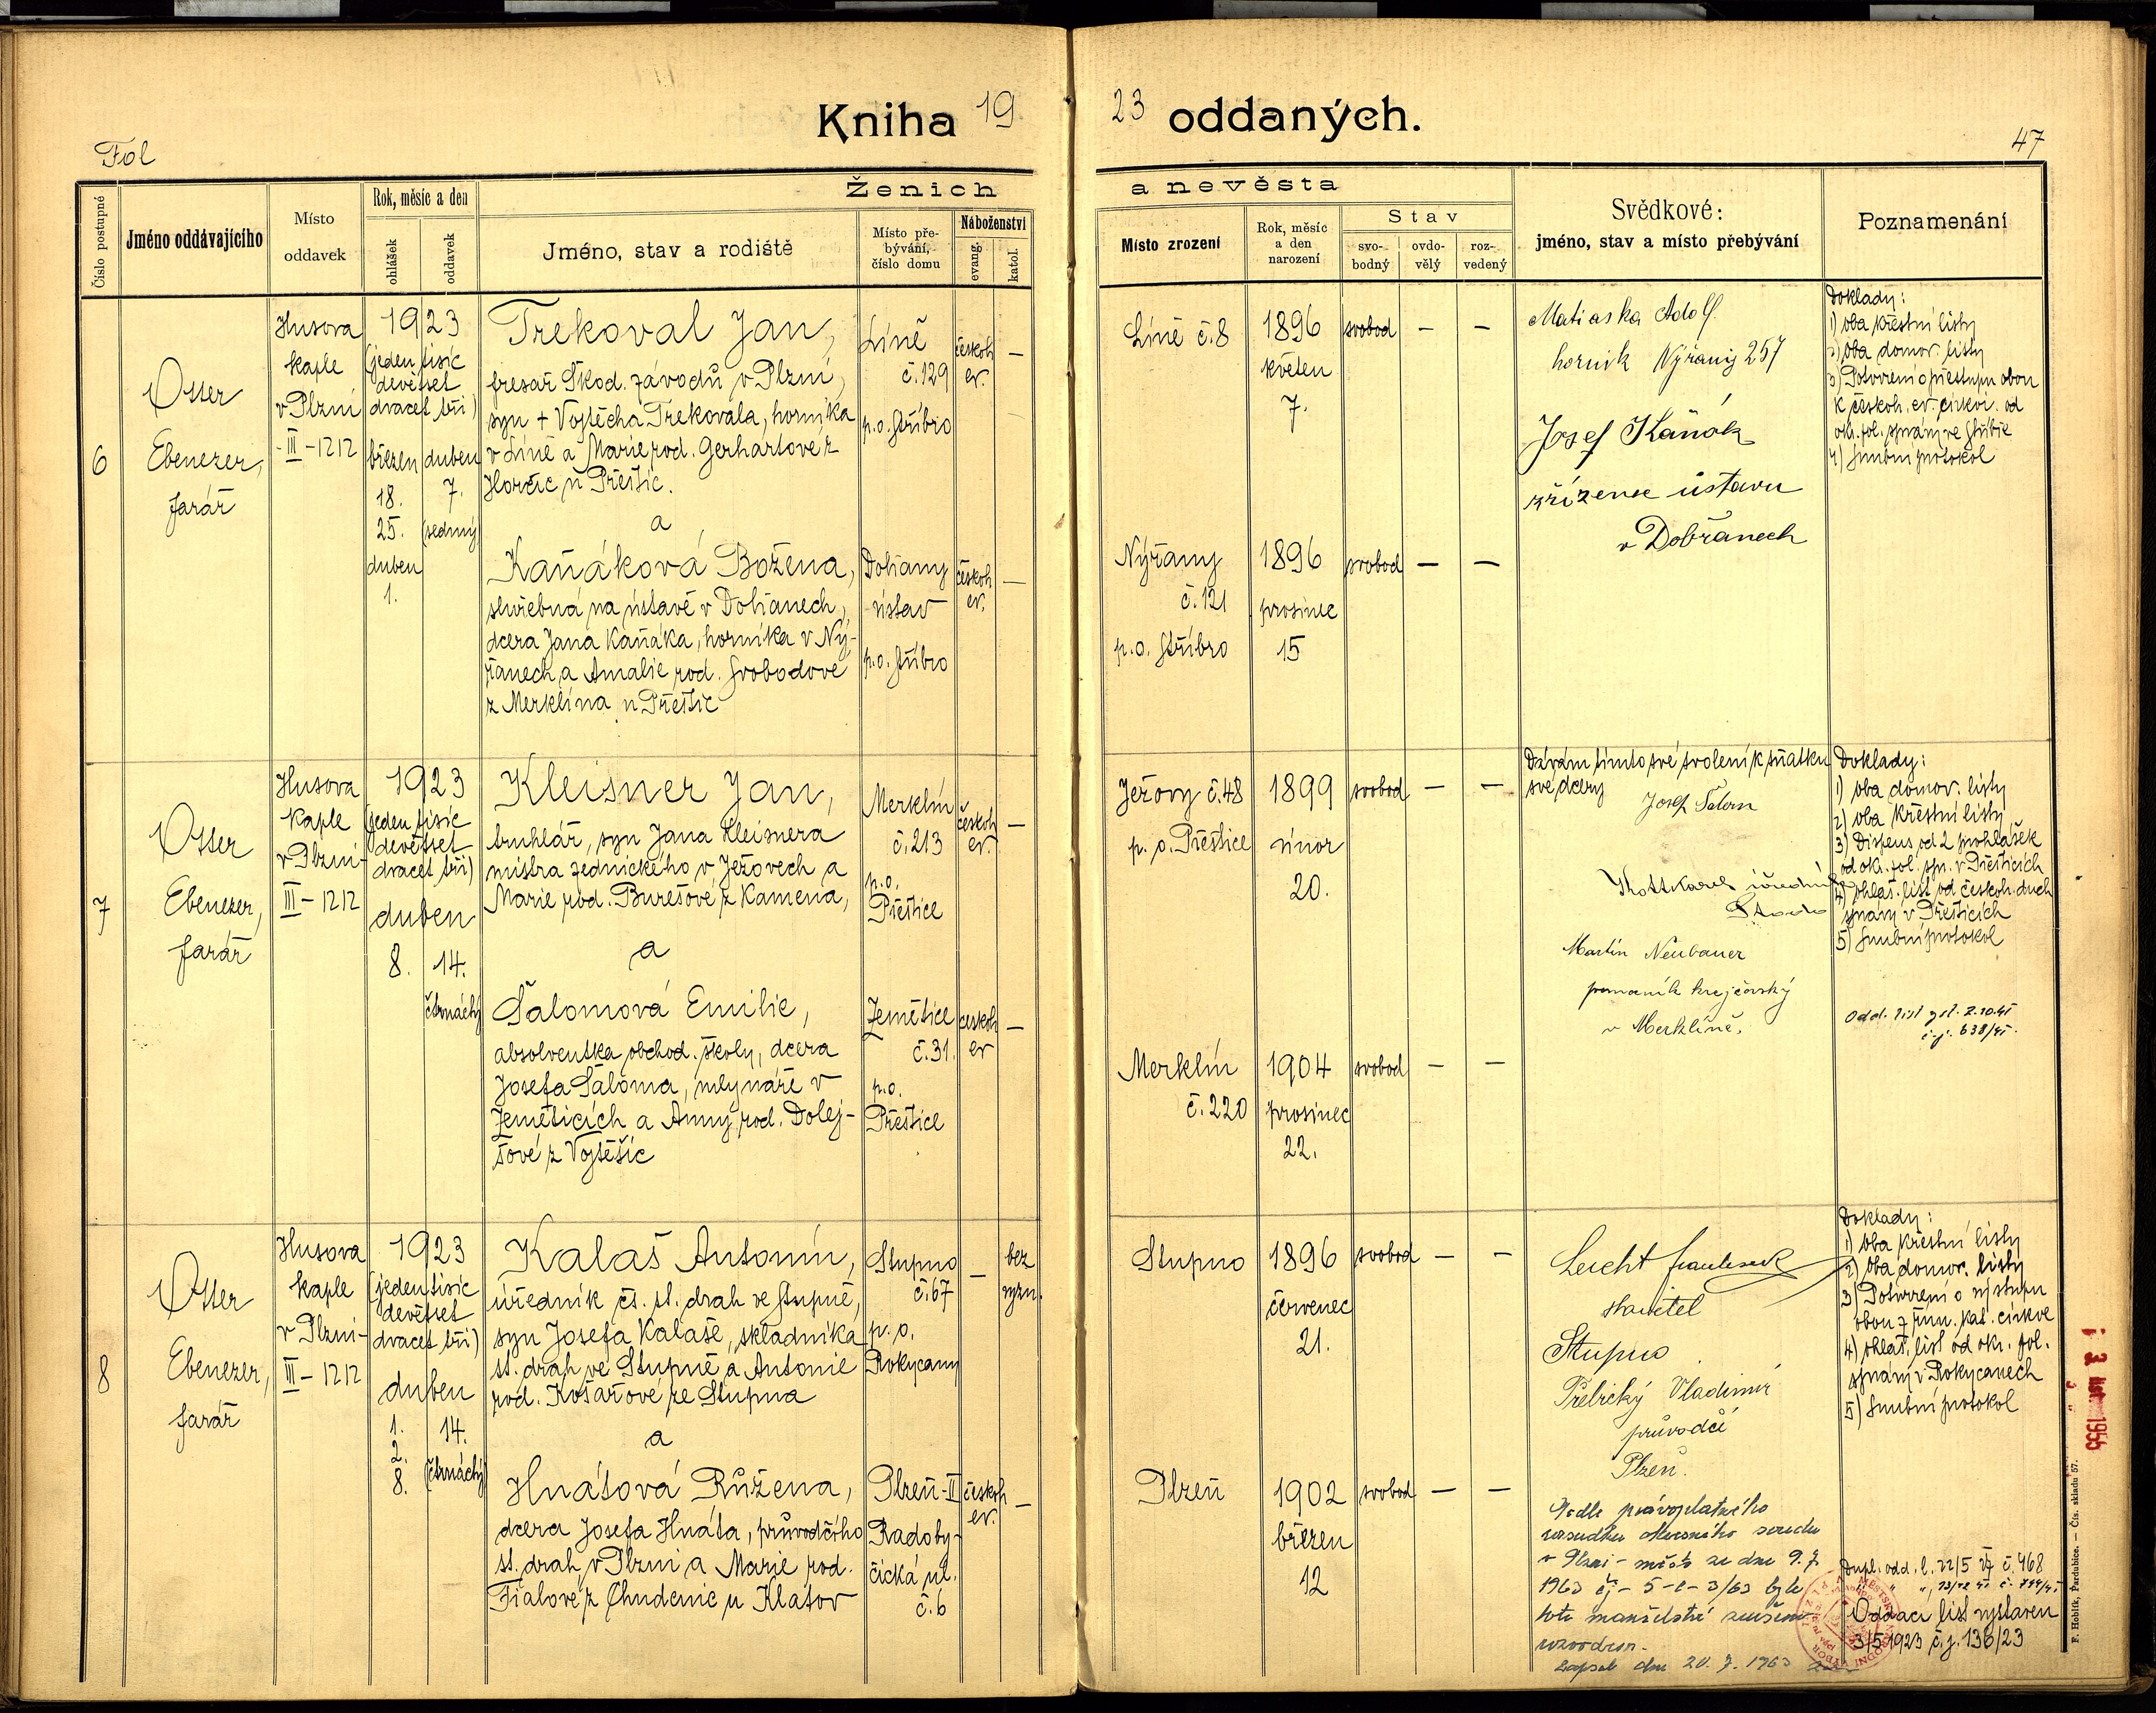 Kniha 19
23 oddaných.
Fol
47
Číslo postupné
Jméno oddávajícího
Místo
oddavek
Rok, měsíc a den
ohlášek
oddavek
Ženich
Jméno, stav a rodiště
Místo pře-
bývání,
číslo domu
Náboženství
evang.
katol.
a nevěsta
Místo zrození
Rok, měsíc
a den
narození
Stav
svo-
bodný
ovdo-
vělý
roz-
vedený
Svědkové:
jméno, stav a místo přebývání
Poznamenání
6
Otter
Ebenezer,
farář
Husova
kaple
v Plzni
-III-1212
1923
(jeden tisíc
devětset
dvacet tři)
březen
18.
25.
duben
1.
duben
7.
(sedmý
Trekoval Jan,
fresař Škod. závodů v Plzni,
syn + Vojtěcha Trekovala, horníka
v Líně a Marie rod. Gerhartové z
Horčic u Přeštic.
a
Kaňáková Božena,
služebná na ústavě v Dobřanech,
dcera Jana Kaňáka, horníka v Ný-
řanech a Amalie rod. Svobodové
z Merklína u Přeštic
Líně
č. 129
p. o. Stříbro
českob
ev.
—
Dobřany
ústav
p. o. Stříbro
českob
ev.
—
Líně č. 8
1896
květen
7.
svobod — —
Nýřany
č. 121
p. o. Stříbro
1896
prosinec
15
svobod — —
Matiaska Adolf
horník Nýřany 257
Josef Kaňák
zřízenec ústavu
v Dobřanech
Doklady:
1) oba křestní listy
2) oba domov. listy
3) Potvrzení o přestupu obou
k českob. ev. církvi od
okr. pol. správy ve Stříbře
4) Snubní protokol
7
Otter
Ebenezer,
farář
Husova
kaple
v Plzni-
III-1212
1923
(jeden tisíc
devětset
dvacet tři)
duben
8.
14.
čtrnáctý
Kleisner Jan,
truhlář, syn Jana Kleisnera
mistra zednického v Ježovech a
Marie rod. Burešové z Kamena,
a
Šalomová Emilie,
absolventka obchod. školy, dcera
Josefa Šaloma, mlynáře v
Zeměticích a Anny rod. Dolej-
šové z Vojtěšic
Merklín
č. 213
p. o.
Přeštice
českob
ev.
—
Zemětice
č. 31.
p. o.
Přeštice
českob
ev
—
Ježovy č. 48
p. o. Přeštice
1899
únor
20.
svobod — —
Merklín
č. 220
1904
prosinec
22.
svobod — —
Dávám tímto své svolení k sňatku
své dcery
Josef Šalom
Kott Karel úředník
Martin Neubauer
pomocník krejčovský
v Merklíně.
Doklady:
1) oba domov. listy
2) oba křestní listy
3) Dispens od 2 prohlášek
od ok. pol. spr. v Přešticích
4) ohláš. list od českob. duch
správy v Přešticích
5) Snubní protokol
Odd. list
č. j. 638/41.
8
Otter
Ebenezer,
farář
Husova
kaple
v Plzni-
III-1212
1923
(jeden tisíc
devětset
dvacet tři)
duben
1.
2.
8.
14.
(čtrnáctý)
Kalaš Antonín,
úředník čs. st. drah ve Stupně,
syn Josefa Kalaše, skladníka
st. drah ve Stupně a Antonie
rod. Košařové ze Stupna
a
Hnátová Růžena,
dcera Josefa Hnáta, průvodčího
st. drah v Plzni a Marie rod.
Fialové z Chudenic u Klatov
Stupno
č. 67
p. o.
Rokycany
—
bez
vyzn.
Plzeň-II
Radoby-
čická ul.
č. 6
českob
ev.
—
Stupno
1896
červenec
21.
svobod — —
Plzeň
1902
březen
12
svobod — —
Leicht
stavitel
Stupno
Vladimír
průvodčí
Plzeň.
Podle právoplatného
rozsudku okresního soudu
v Plzni - město ze dne 9. 7.
1963 čj - 5-C-3/63 bylo
toto manželství zrušeno
rozvodem.
Zapsal dne 20. 7. 1963
Doklady:
1) oba křestní listy
2) oba domov. listy
3) Potvrzení o výstupu
obou z řím. kat. církve
4) ohláš. list od okr. pol.
správy v Rokycanech
5) Snubní protokol
Dupl. odd. l. č. 468
Oddací list vystaven
3/5 1923 č. j. 136/23
1955
F. Hoblík, Pardubice. — Čís. skladu 57.